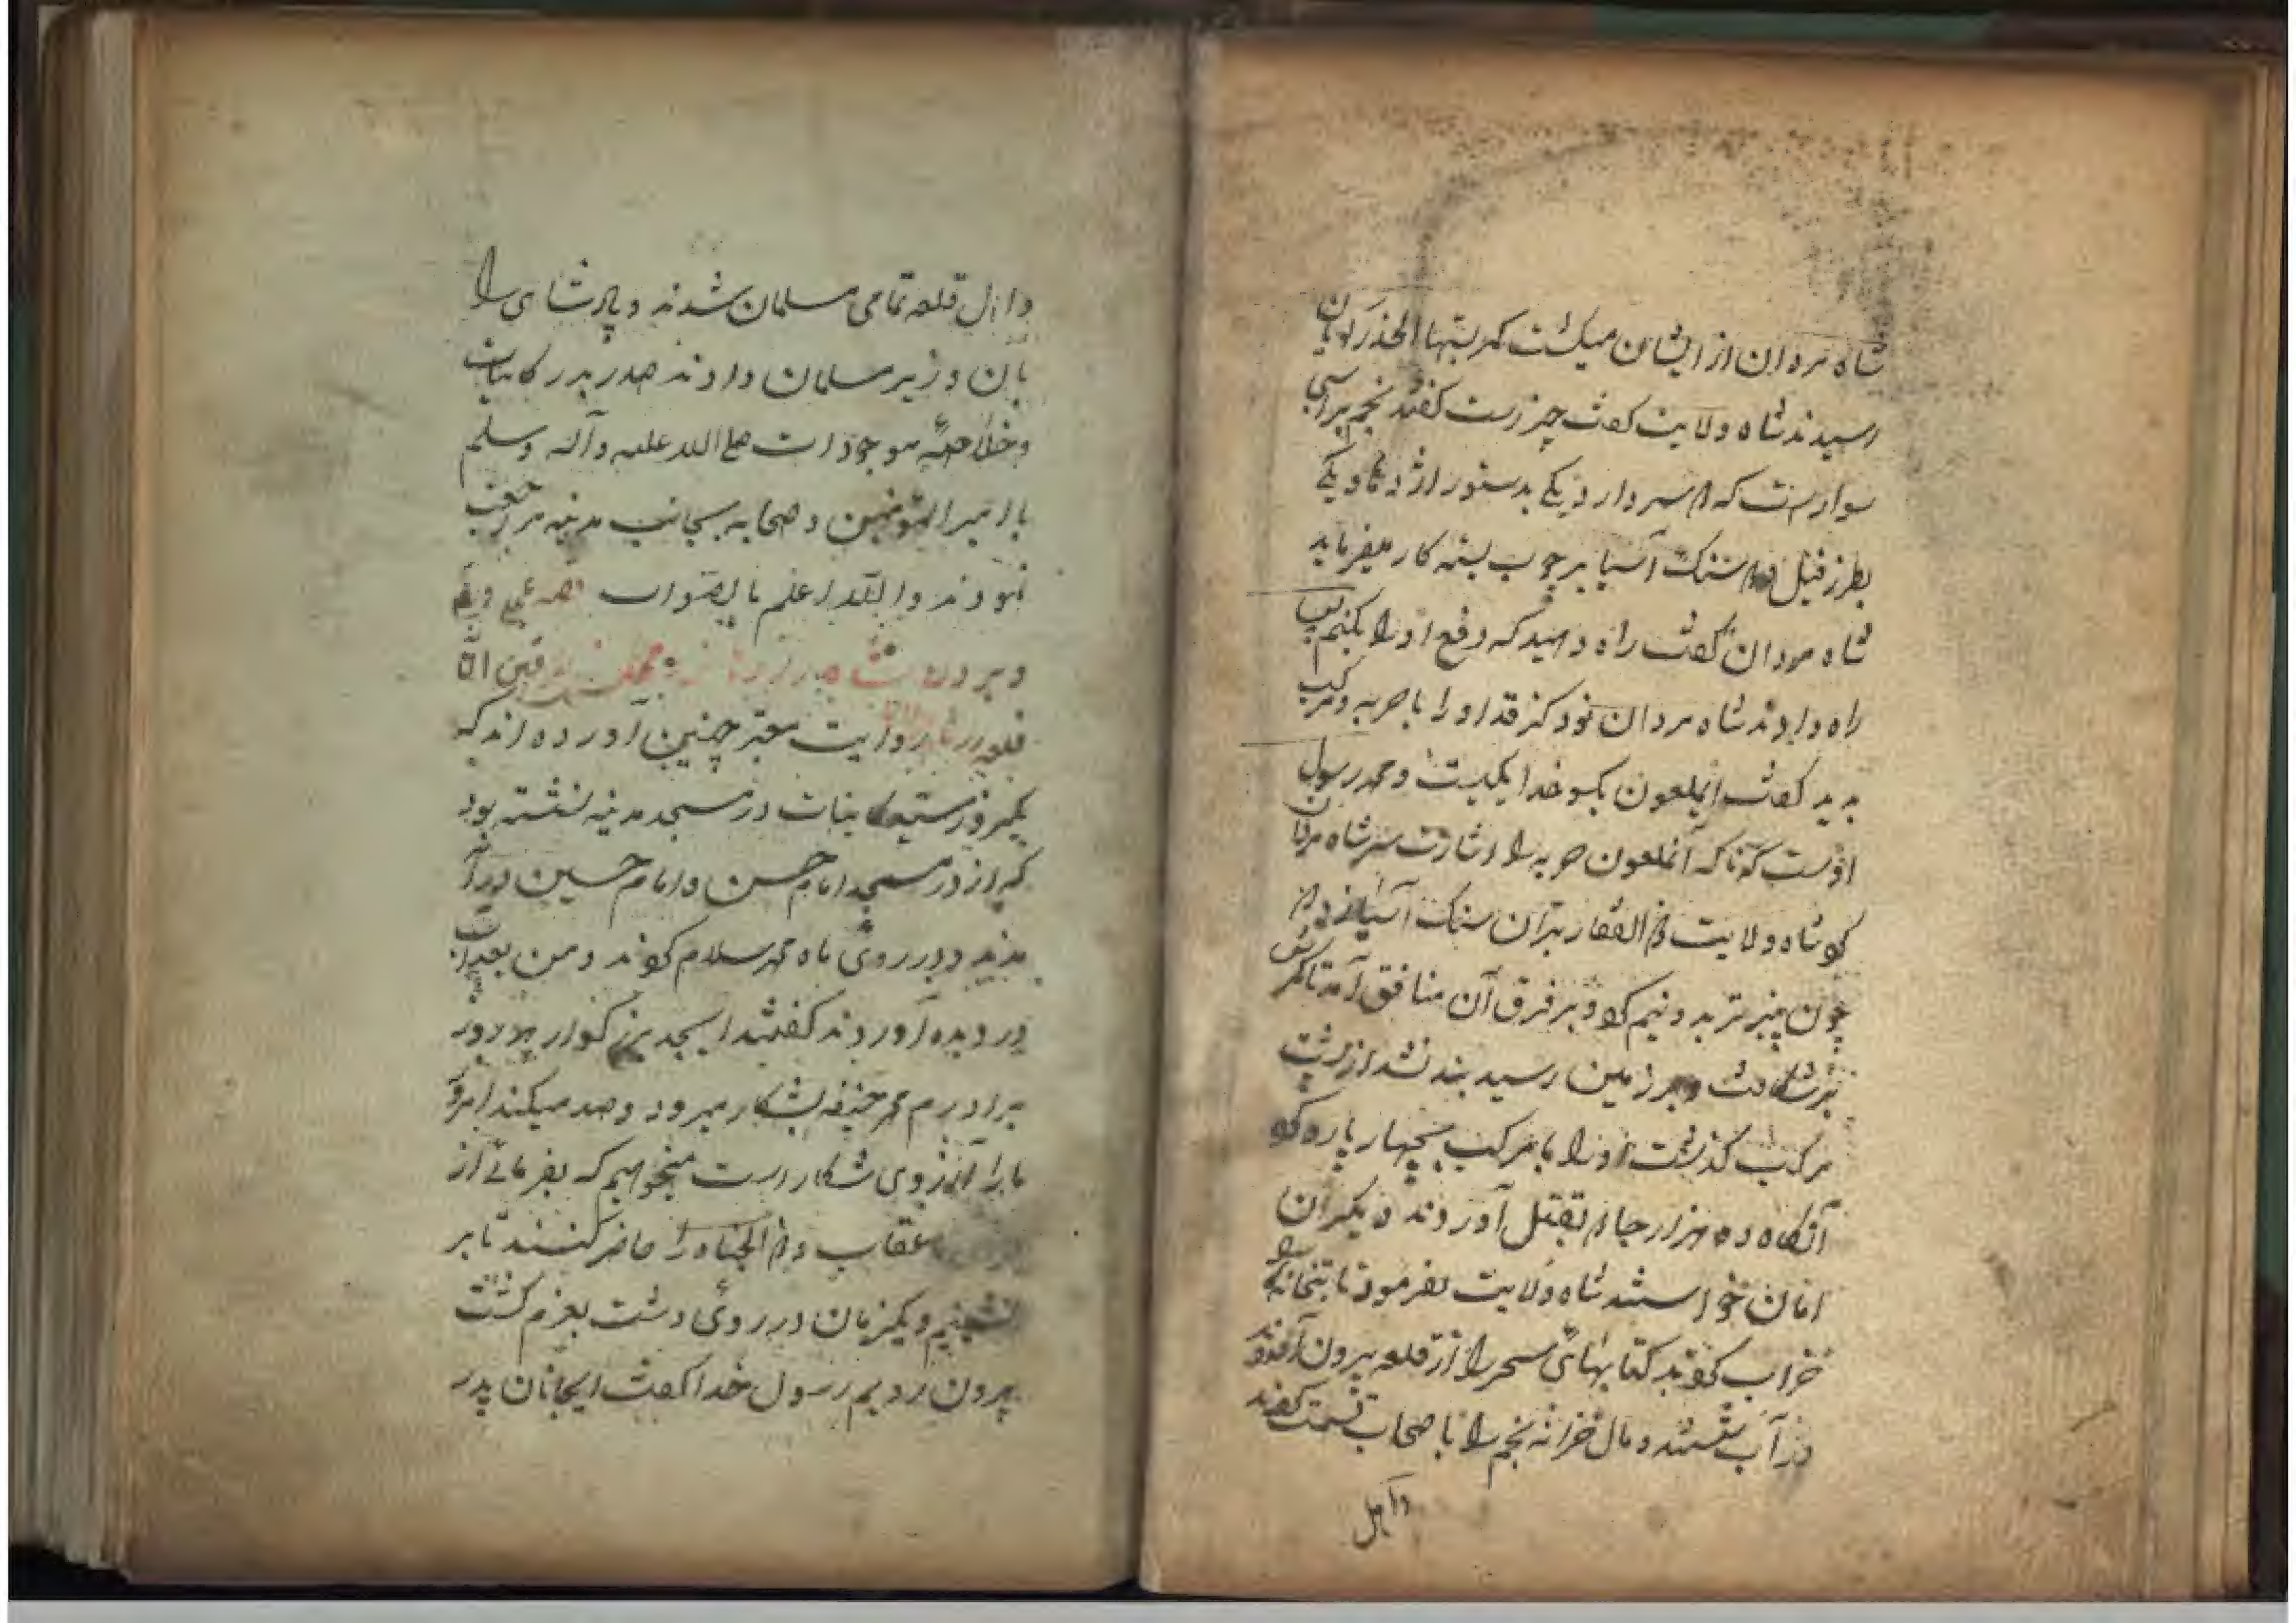 شاه مردان از ایشان میکشت که بتنها الحذر کویان
رسیدند شاه ولایت کفت چیزست کفتند نجم بر اسبی
سوارست که سردار دیکی بدستور اژدها و یکی
بطرز فیل سنک آسیا بر چوب بسته کار میفرماید
شاه مردان کفت راه دهید که دفع او را بکنم پس
راه دادند شاه مردان نود کز قد او را با حربه و مرکب
بدید کفت ایملعون بکو خدا یکیست و محمد رسول
اوست که ناکه آنملعون حربه را سر شاه مردان
کو شاه ولایت ذوالفقار بر آن سنک آسیا زد
چون پنیر تر بدو نیم کو و بر فرق آن منافق آمد تا کمر
رسید بند نشد از پشت
مرکب کذشت او را با مرکب بچهار پاره کو
آنکاه ده هزار جا بقتل آوردند دیکران
امان خواستند شاه ولایت بفرمود تا بتخانه را
خراب کوند کتابهائی سحر را از قلعه بیرون آوردند
در آب بشستند و مال خزانه نجم را با صحاب قسمت کوند
واهل
واهل قلعه تمامی مسلمان شدند و پادشاهی را
بان وزیر مسلمان دادند صدر بدر کاینات
وخلاصهٔ موجودات صلی الله علیه وآله وسلم
با امیر المؤمنین و صحابه بجانب مدینه مراجعت
نمودند والله اعلم بالصواب قصه علی
و بردن شاه
قلعه روایت معتبر چنین آورده اند که
یکروز سید کاینات در مسجد مدینه نشسته بود
که از در مسجد امام حسن و امام حسین در آ
مدند و در روی ماه محمد سلام کوند و من بعد آب
در دیده آوردند کفتند ایجد بزرکوار هر روز
برادرم محمد حنیفه بشکار میرود و صد میکند امروز
ما را آرزوی شکار است میخواهیم که بفرمائی از
عقاب و ذوالجناح را حاضر کنند تا بر
نشینیم و یکزمان در روی دشت بعزم کشت
بیرون رویم رسول خدا کفت ایجانان پدر